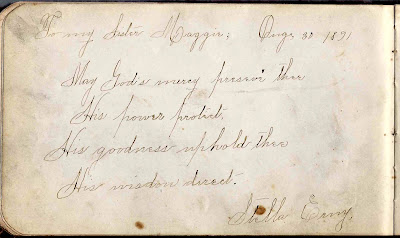 To my Sister Maggie; Aug. 30 1891
May God's mercy preserv thee
His power protect.
His goodness uphold thee
His wisdom direct.
Stella